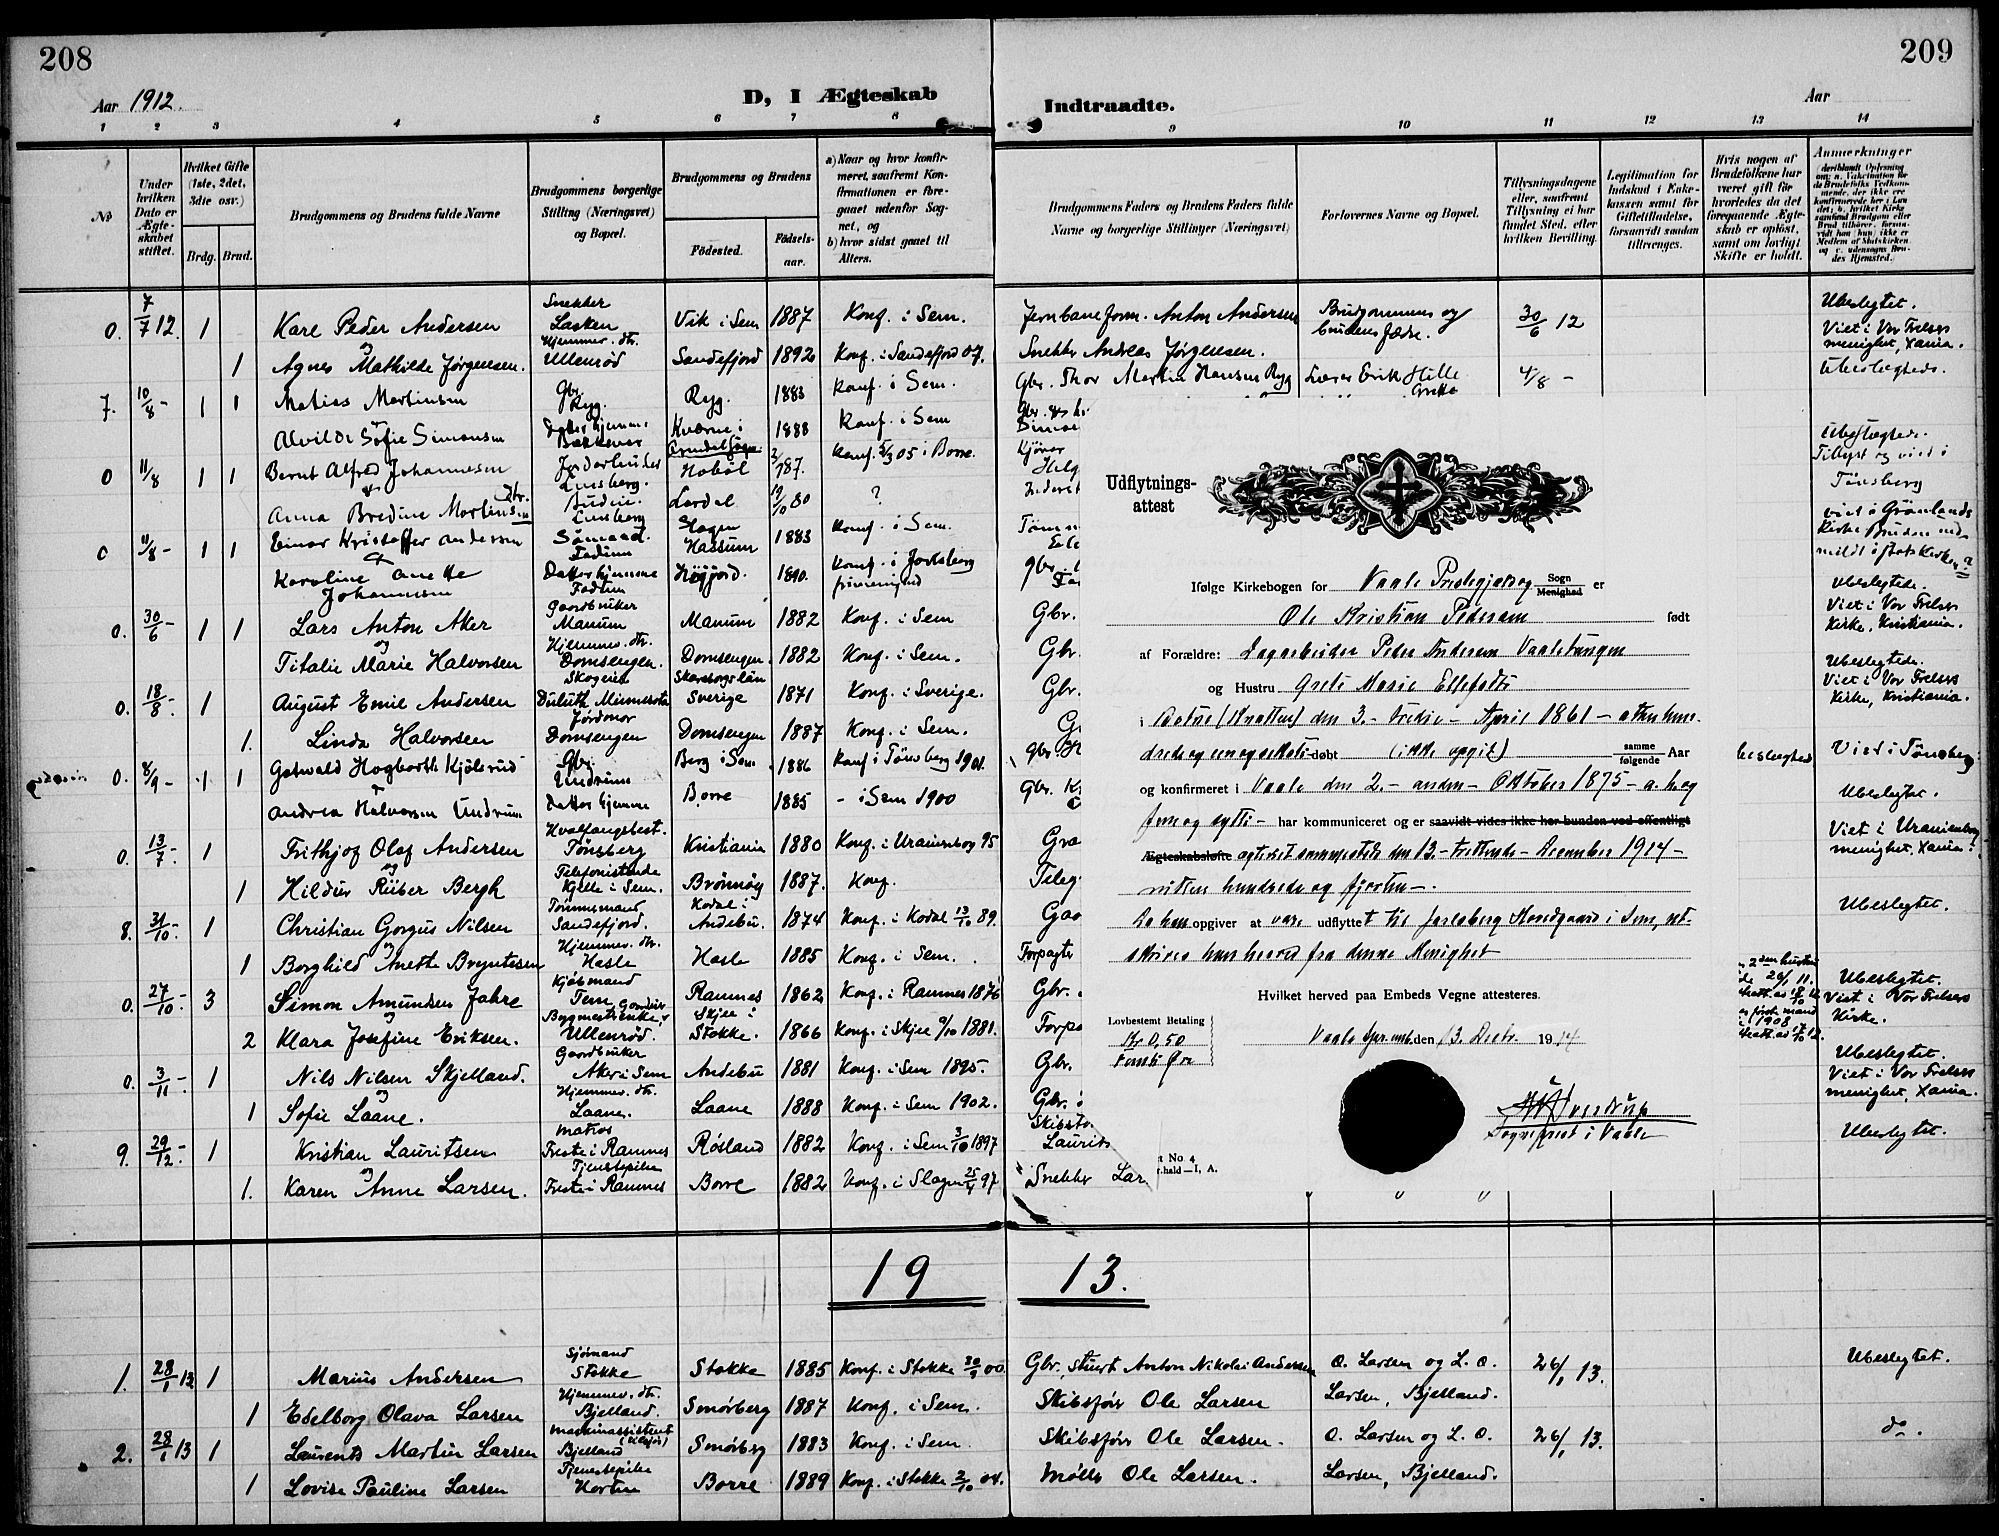 208
Aar 1912.
D, I Ægteskab
Indtraadte.
Aar
209
1 2 3 4 5 6 7 8 9 10 11 12 13 14
No
Under hvilken Dato er Ægteskabet stiftet.
Hvilket Gifte (1ste, 2det, 3die osv.)
Brdg. Brud.
Brudgommens og Brudens fulde Navne
Brudgommens borgerlige Stilling (Næringsvei) og Bopæl.
Brudgommens og Brudens
Fødested.
Fødselsaar.
a) Naar og hvor konfirmeret, saafremt Konfirmationen er foregaaet udenfor Sognet, og
b) hvor sidst gaaet til Alters.
Brudgommens Faders og Brudens Faders fulde Navne og borgerlige Stillinger (Næringsvei)
Forlovernes Navne og Bopæl.
Tillysningsdagene eller, saafremt Tillysning ei har fundet Sted, efter hvilken Bevilling.
Legitimation for Indskud i Enkekassen samt for Giftetilladelse, forsaavidt saadan tiltrænges.
Hvis nogen af Brudefolkene har været gift før hvorledes da det foregaaende Ægteskab er opløst, samt om lovligt Skifte er holdt.
Anmerkninger
0. 7/7 12 1 Karl Peder Andersen Snekker Lasken Vik i Sem 1887 Konf. i Sem. Jernbaneform. Anton Andersen Brudgommens og brudens fædre. 30/6 12 Ubeslegtet. Viet i Vor Frelsers menighet, Xania.
og
1 Agnes Mathilde Jørgensen. Hjemmev. dtr. Ullenrød Sandefjord 1892 Konf. i Sandefjord 07. Snekker Andreas Jørgensen.
7. 10/8 - 1 1 Matias Martinsen Gbr. Ryg. Ryg. 1883 Konf. i Sem. Gbr. Thor Martin Hansen Ryg Lærer Erik Hille 4/8 - Ubeslegtede.
Alvilde Sofie Simonsen Datter hjemme Bakkever Kværne i 1888 Konf. i Sem
0 11/8 1 1 Bernt Alfred Johannesen Jordarbeider Linsberg. Hobøl 87. Konf. 05 i Borre. Ubeslegtede. Tillyst og viet i Tønsberg
Anna Bredine Martinsen Lardal 19/10 80 ?
0 11/8 - 1 1 Einar Kristoffer Andersen Sømand. Fadum Slagen Hassum 1883 Konf. i Sem. viet i Grønlands Kirke
Karoline Anette Johannesen Datter hjemme Fadum Høyjord. 1890. Konf. i Jarlsberg frimenighed
0. 30/6 - 1 1 Lars Anton Aker Gaardbruker Manum Manum 1882 Konf. i Sem Gbr. Ubeslegtede. Viet i Vor Frelsers Kirke, Kristiania.
og
Titalie Marie Halvorsen Hjemmev. dtr. Domsengen. Domsengen. 1882 Konf. i Sem. Gbr.
0. 18/8 - 1 August Emil Andersen Skogeier Duluth Minnesota Skaraborgs län Sverige 1871 Konf. i Sverige. Gbr. Ubeslegtede. Viet i Vor Frelsers Kirke, Kristiania.
1. Linda Halvorsen Jordmor Domsengen Domsengen 1887 Konf. i Sem.
0. 8/9 - 1 1 Gotwald Hogbarth Kjølsrud Gbr. Undrum Berg i Sem 1886 Konf i Tønsberg 1901. beslegted Viet i Tønsberg
Andrea Halvorsen Undrum Datter hjemme Borre 1885 - i Sem 1900 Gbr. Ubeslegtet.
0. 13/7 - 1 Frithjof Olaf Andersen Hvalfangstbest. Tønsberg Kristiania 1880 Konf. i Uranienborg 95 Viet i Uranienborg menighet, Xania.
og
1 Hildur Riiber Bergh Telefonistinde Gjelle i Sem. Brønnøy 1887. Konf. Teleg
8. 31/10 - 1 Christian Gorgus Nilsen Tømmermand Sandefjord. Kodal i Andebu. 1874 Konf. i Kodal 13/10 89. Ubeslegtet.
og
1 Borghild Anette Bryntesen Hjemmev. dtr. Hasle Hasle 1885 Konf. i Sem. Forpagter
0. 27/10 - 3 Simon Amundsen Jahre Kjøbmand Tem Ramnes 1862 Konf. i Ramnes 1876 Gbr. Ubeslegtet. Viet i Vor Frelsers Kirke.
og
2 Klara Josefine Eriksen. Ullenrød. Skjee i Stokke. 1866 Konf. i Skjee 9/10 1881. Forpa
0. 3/11 - 1 Nils Nilsen Skjelland. Gaardbruker Aker i Sem Andebu 1881 Konf. i Sem 1895. Gbr. Ubeslegtet. Viet i Vor Frelsers menighet, Xania.
og
1 Sofie Laane. Hjemmev. dtr. Laane. Laane 1888 Konf. i Sem 1902. Gbr.
9. 29/12 - 1 Kristian Lauritsen Matros Freste i Ramnes Røsland 1882 Konf. i Sem 3/10 1897 Skibsto Laurits Ubeslegtet.
og
1. Karen Anne Larsen. Tjenestepike Freste i Ramnes Borre 1882 Konf. i Slagen 25/4 97 Snekker Lar " " "
Udflytnings-
attest
Ifølge Kirkebogen for Vaale Prestegjelds Sogn Menighed er
Ole Kristian Pedersen født
af Forældre: Dagarbeider Peder Andersen Vaaletangen
og Hustru Grete Marie Ellefsdtr
i Botne (Kratten) den 3. - tredie - April 1861 - atten hun-
drede og en og seksti - døbt (ikke opgit) samme følgende Aar
og konfirmeret i Vaale den 2. - anden - Oktober 1875 - a. h. og
fem og sytti - har kommuniceret og er saavidt vides ikke her bunden ved offentligt
Ægteskabsløfte egteviet sammesteds den 13. - trettende - December 1914 -
nitten hundrede og fjorten -.
Da han opgiver at være udflyttet til Jarlsberg Hovedgaard i Sem, ut-
skrives han herved fra denne Menighet
Hvilket herved paa Embeds Vegne attesteres.
Lovbestemt Betaling
Kr 0,50
Femti Øre
Vaale den 13. Decbr. 1914
Sogneprest i Vaale
t No. 4
r.hald—I, A.
1913.
1. 28/1 13 1 Marius Andersen Sjømand Stokke Stokke 1885 Konf. i Stokke 30/9 00. Gbr. Sturt Anton Nikolai Andersen O. Larsen og L. O. Larsen, Bjelland. 26/1 13. Ubeslegtet.
1 Edelborg Olava Larsen Hjemmev. dtr. Bjelland. Smørberg 1887 Konf. i Sem. Skibsfør Ole Larsen
2. 28/1 13 1 Laurents Martin Larsen Maskinassistent Bjelland Smørberg 1883 Konf. i Sem. Skibsfør Ole Larsen. O. Larsen og L. O. Larsen, Bjelland. 26/1 13. do.
1 Lovise Pauline Larsen Tjenestepike Horten Borre 1889 Konf. i Stokke 2/10 04. Møller Ole Larsen.